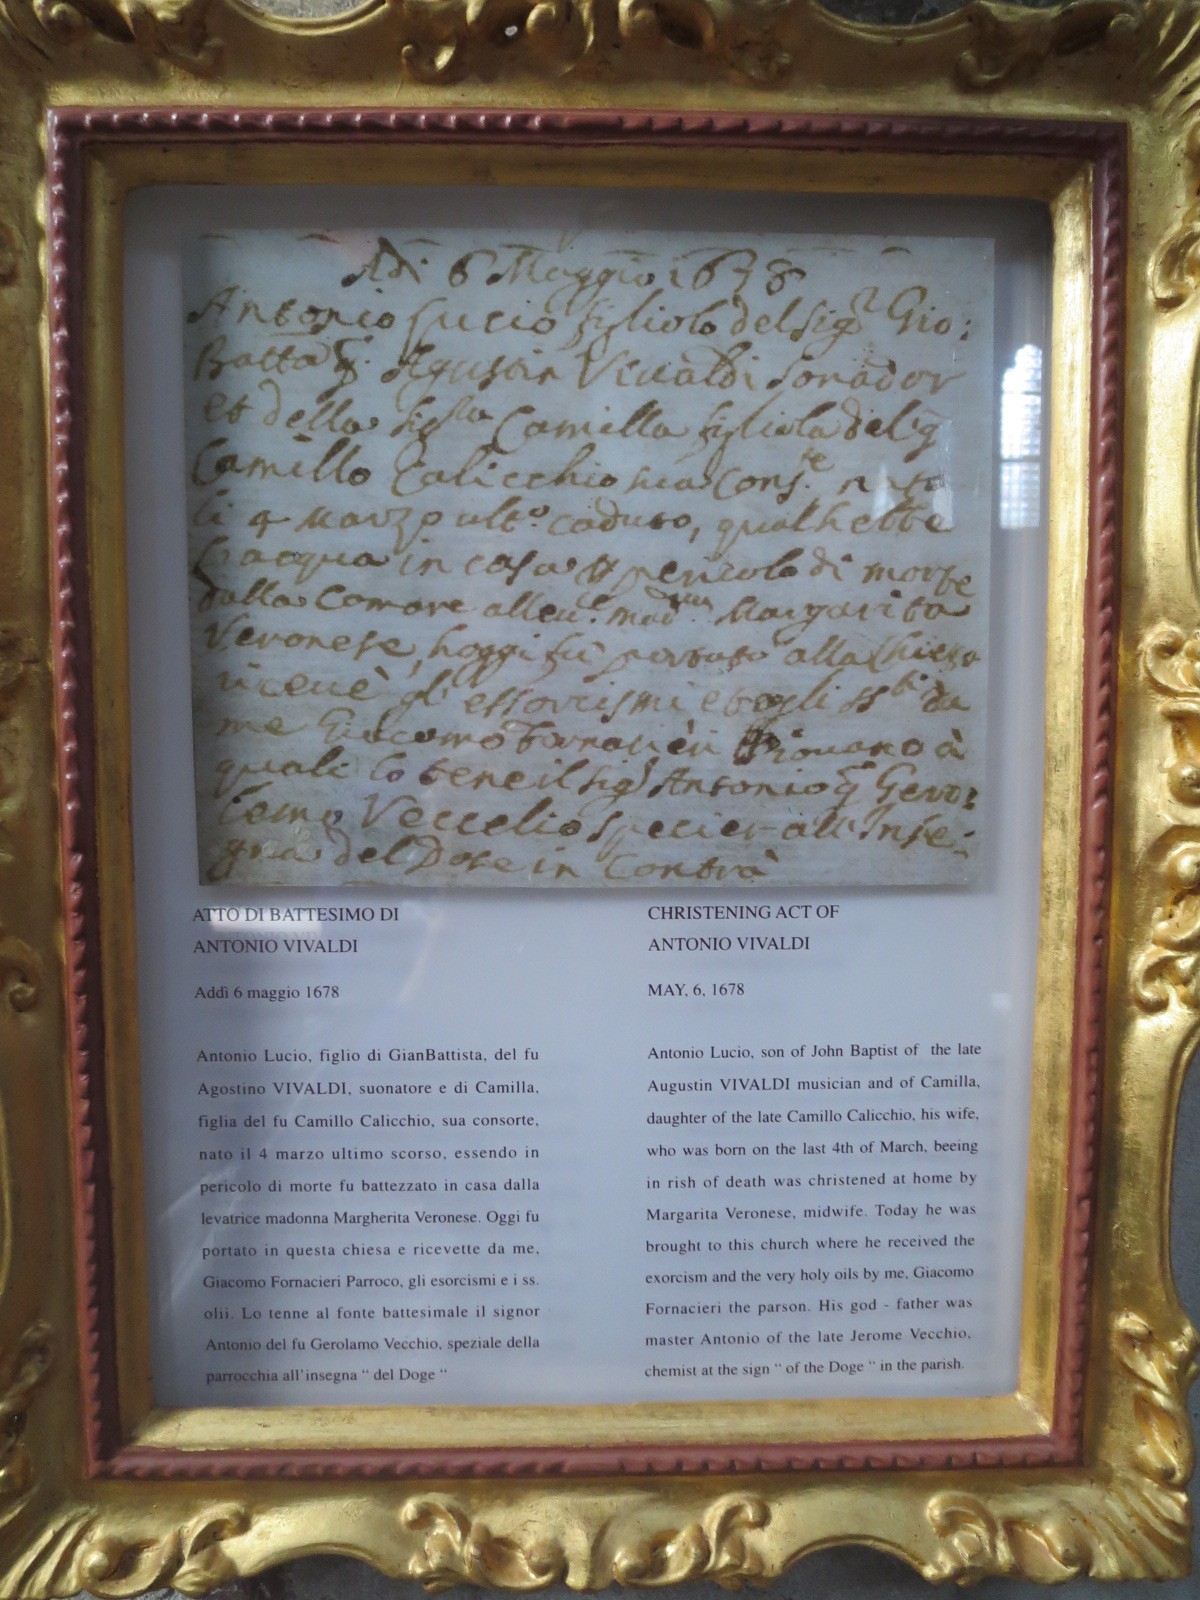 Adi 6 Maggio 1678
Antonio Lucio figliolo del Sigr Gio:
Batta q. Agustin Vivaldi Sonador
et della Sigra Camilla figliola del q
Camillo Calicchio sua Conste nato
li 4 Marzo ulto. caduto, qual hebbe
l'acqua in casa p pericolo di morte
dalla Comare alleue. madna Margarita
Veronese, hoggi fù portato alla Chiesa
riceuè gl'essorcismi et ogli ssti da
me Giacomo Fornacieri Piouano à
quali lo tene il Sigr Antonio q Gero:
lemo Veccelio specier all'Inse-
gna del Dose in Contrà
ATTO DI BATTESIMO DI
ANTONIO VIVALDI
Addì 6 maggio 1678
Antonio Lucio, figlio di GianBattista, del fu
Agostino VIVALDI, suonatore e di Camilla,
figlia del fu Camillo Calicchio, sua consorte,
nato il 4 marzo ultimo scorso, essendo in
pericolo di morte fu battezzato in casa dalla
levatrice madonna Margherita Veronese. Oggi fu
portato in questa chiesa e ricevette da me,
Giacomo Fornacieri Parroco, gli esorcismi e i ss.
olii. Lo tenne al fonte battesimale il signor
Antonio del fu Gerolamo Vecchio, speziale della
parrocchia all'insegna “ del Doge “
CHRISTENING ACT OF
ANTONIO VIVALDI
MAY, 6, 1678
Antonio Lucio, son of John Baptist of the late
Augustin VIVALDI musician and of Camilla,
daughter of the late Camillo Calicchio, his wife,
who was born on the last 4th of March, beeing
in rish of death was christened at home by
Margarita Veronese, midwife. Today he was
brought to this church where he received the
exorcism and the very holy oils by me, Giacomo
Fornacieri the parson. His god - father was
master Antonio of the late Jerome Vecchio,
chemist at the sign “ of the Doge “ in the parish.